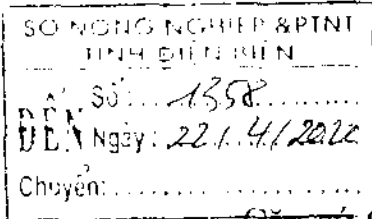 SỞ NÔNG NGHIỆP & PTNT
TỈNH ĐIỆN BIÊN
ĐẾN
Số: 1358
Ngày: 22/4/2020
Chuyển: